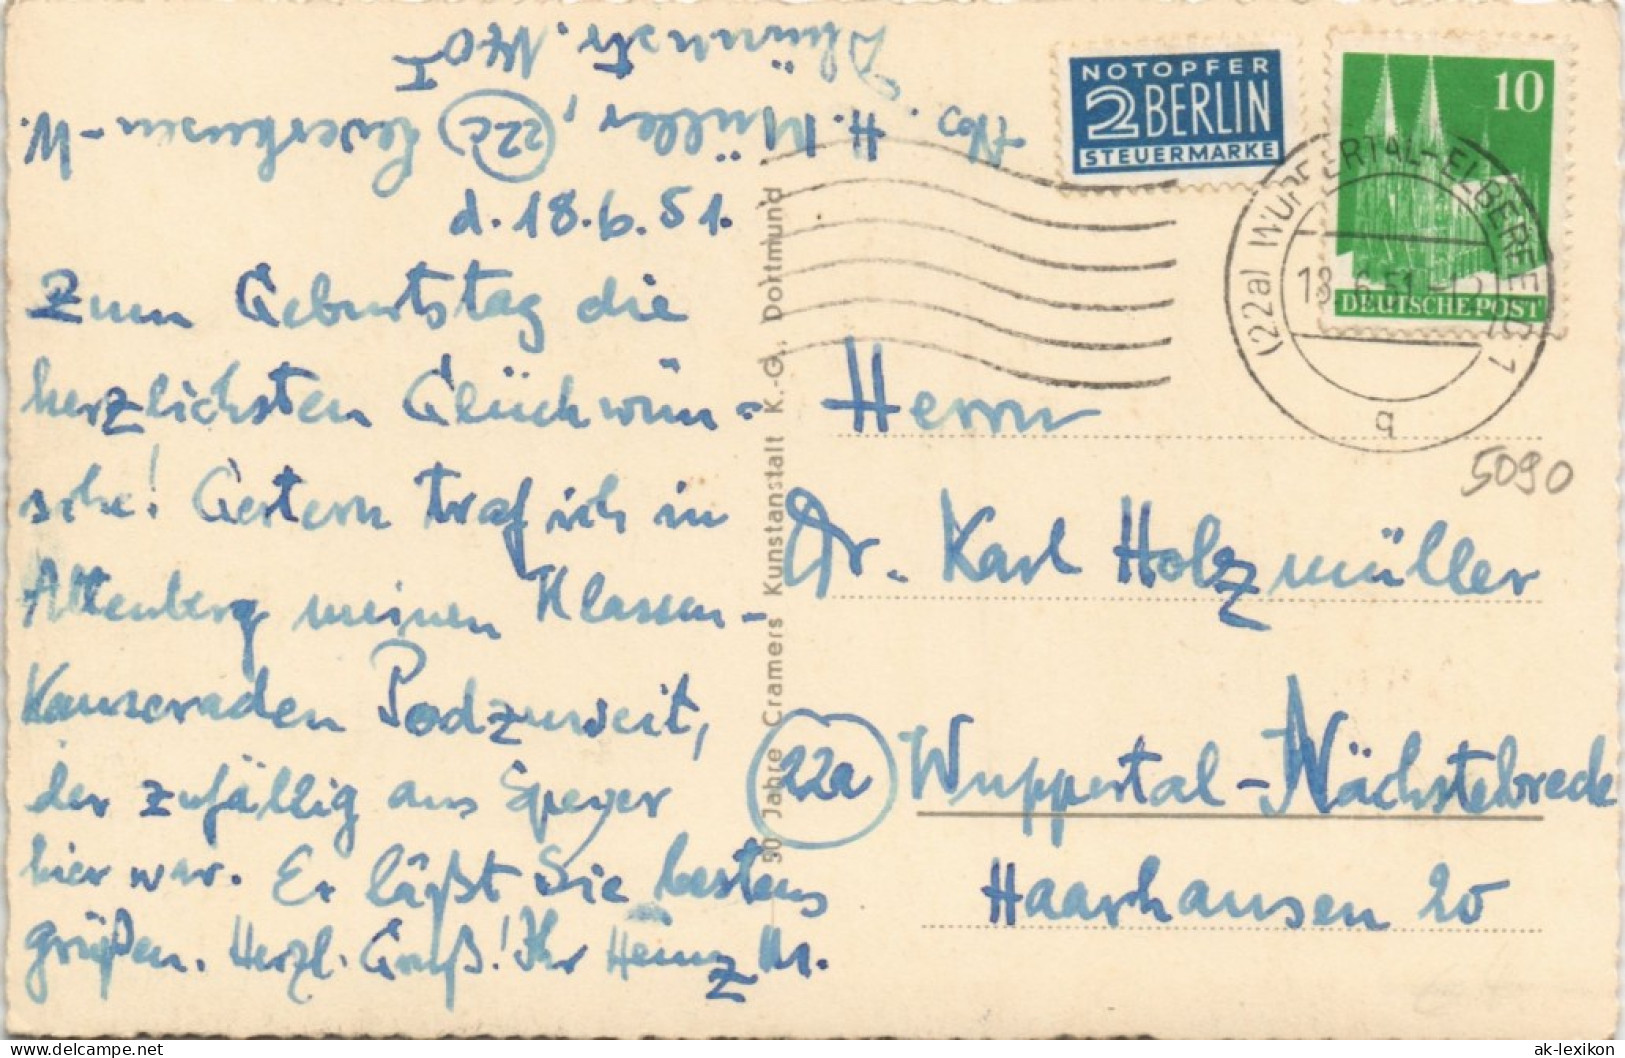 Abs.: H. Müller, (22c) Leverkusen-W.
Dhünnstr. 140 I
d. 18.6.51.
Zum Geburtstag die
herzlichsten Glückwün-
sche! Gestern traf ich in
Altenberg meinen Klassen-
Kameraden Podzuweit,
der zufällig aus Speyer
hier war. Er läßt Sie bestens
grüßen. Herzl. Gruß! Ihr Heinz M.
90 Jahre Cramers Kunstanstalt K.-G., Dortmund
NOTOPFER
2 BERLIN
STEUERMARKE
10
DEUTSCHE POST
(22a) WUPPERTAL-ELBERFELD 1
18.6.51
q
5090
Herrn
Dr. Karl Holzmüller
(22a) Wuppertal-Nächstebreck
Haarhausen 20
delcampe.net
ak-lexikon